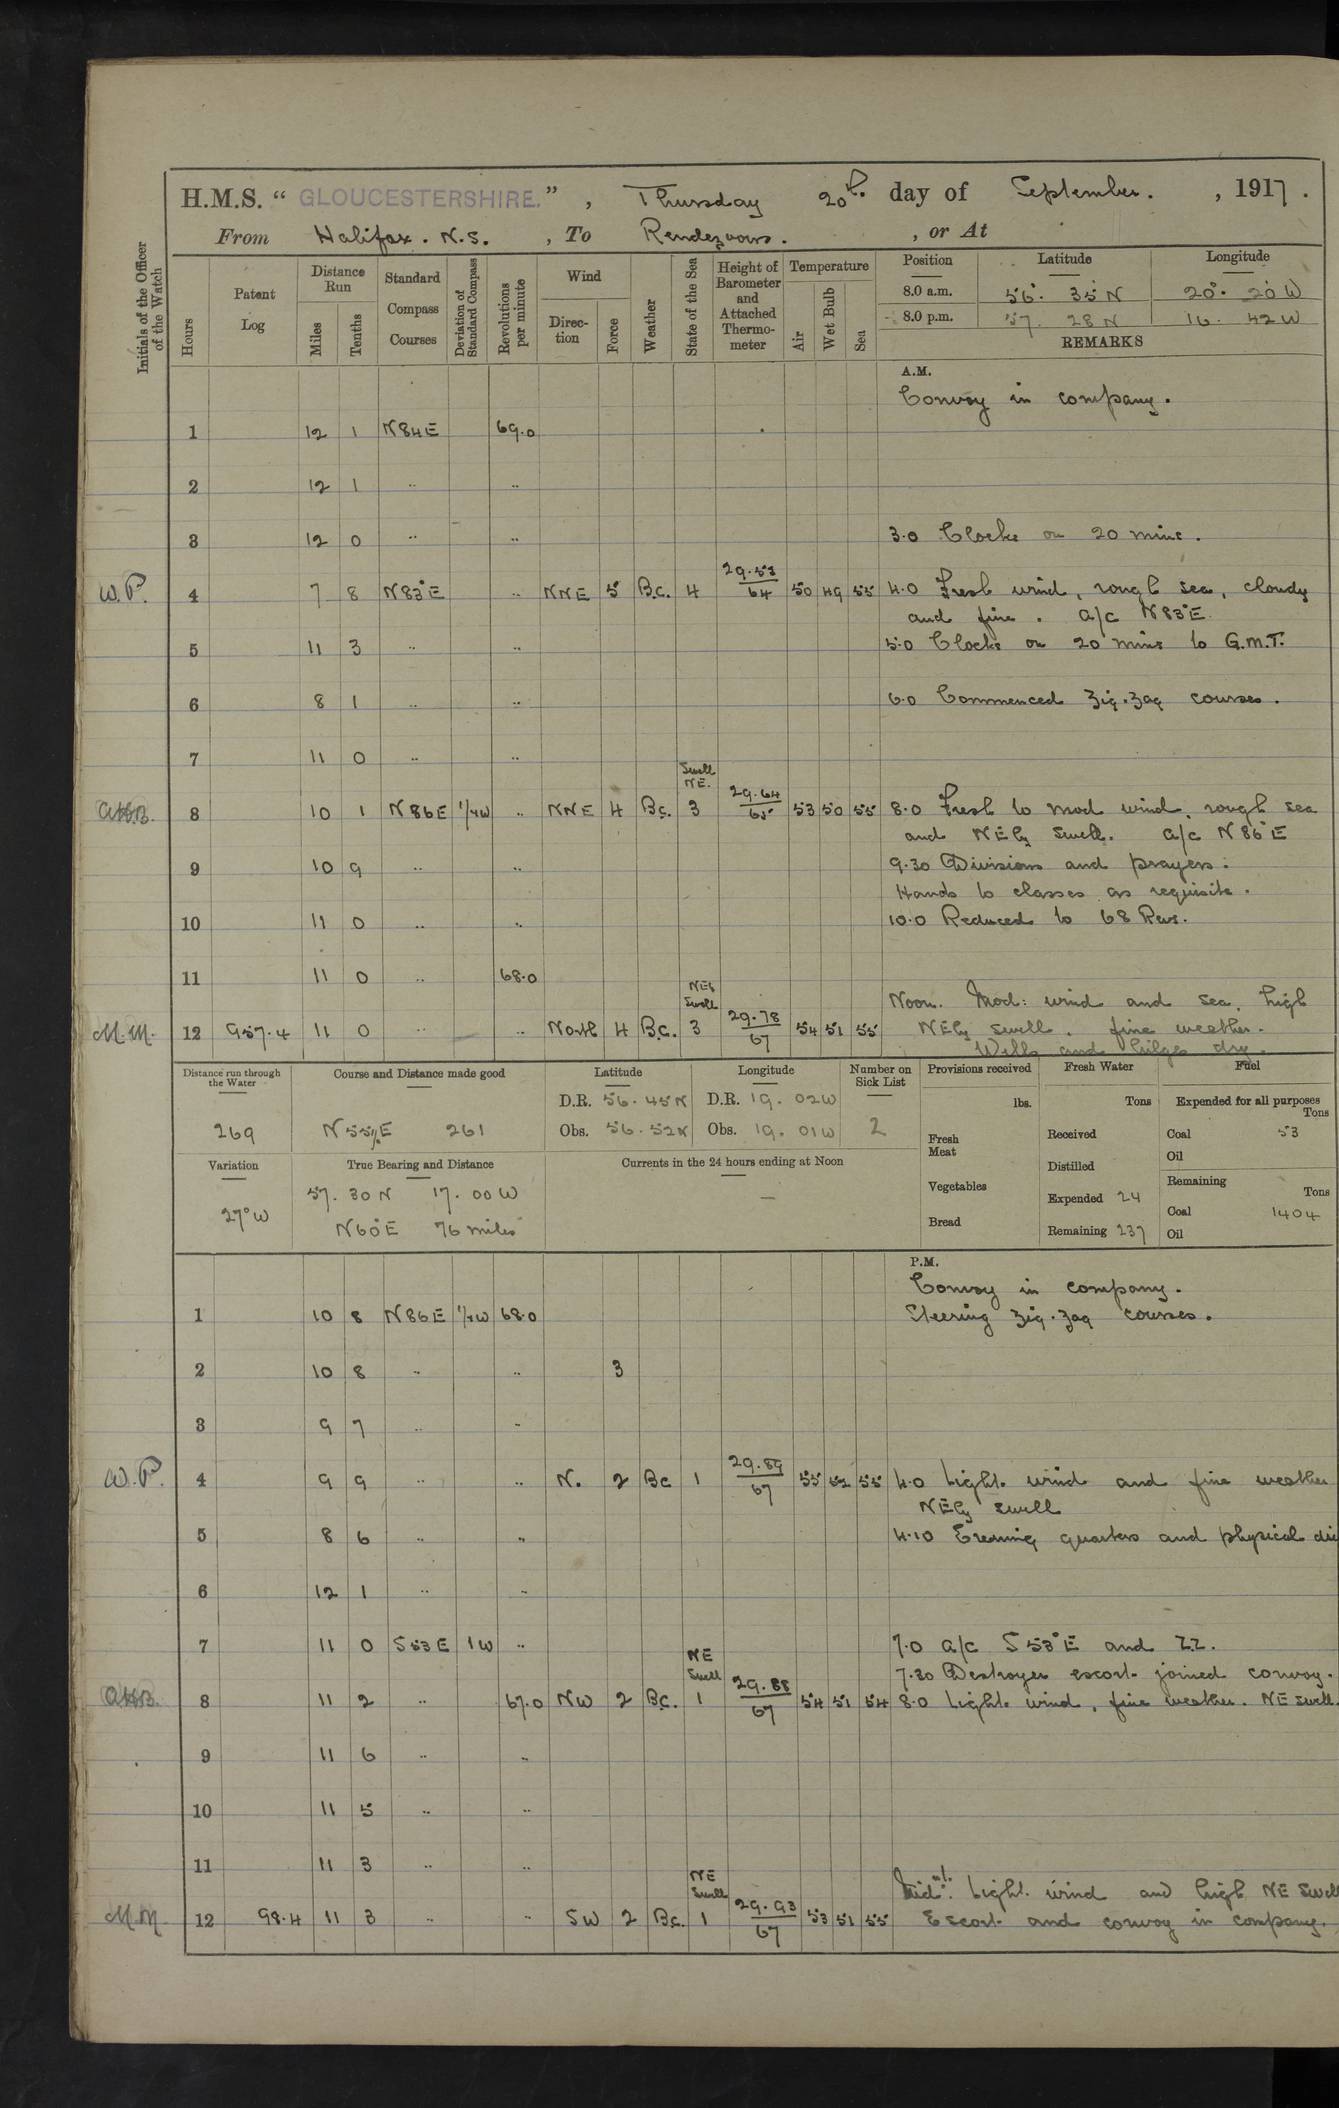 H.M.S. “ GLOUCESTERSHIRE. ” , Thursday 20th day of September. , 1917.
From Halifax. N.S. , To Rendezvous. , or At
Initials of the Officer of the Watch
Hours
Patent Log
Distance Run
Miles
Tenths
Standard Compass Courses
Deviation of Standard Compass
Revolutions per minute
Wind
Direc-tion
Force
Weather
State of the Sea
Height of Barometer and Attached Thermo-meter
Temperature
Air
Wet Bulb
Sea
Position Latitude Longitude
8.0 a.m. 56° 35 N 20° 20 W
8.0 p.m. 57. 28 N 16. 42 W
REMARKS
A.M.
Convoy in company.
1 12 1 N84E 69.0
2 12 1 .. ..
3 12 0 .. .. 3.0 Clocks on 20 mins.
W.P. 4 7 8 N83°E .. NNE 5 B.c. 4 29.53 / 64 50 49 55 4.0 Fresh wind, rough sea, cloudy
and fine. a/c N83°E
5 11 3 .. .. 5.0 Clocks on 20 mins to G.M.T.
6 8 1 .. .. 6.0 Commenced Zig.Zag courses.
7 11 0 .. ..
Swell NE.
8 10 1 N86E 1/4W .. NNE 4 B.c. 3 29.64 / 65 53 50 55 8.0 Fresh to mod wind, rough sea
and NEly swell. a/c N86°E
9 10 9 .. .. 9.30 Divisions and prayers:
Hands to classes as requisite.
10 11 0 .. .. 10.0 Reduced to 68 Revs.
11 11 0 .. 68.0
NEly Swell
Noon. Mod: wind and sea, high
M.M. 12 957.4 11 0 .. .. North 4 B.c. 3 29.78 / 67 54 51 55 NEly swell. fine weather.
Wells and bilges dry.
Distance run through the Water
269
Course and Distance made good
N55½E 261
Latitude
D.R. 56. 45N
Obs. 56. 52N
Longitude
D.R. 19. 02W
Obs. 19. 01W
Number on Sick List
2
Variation
27°W
True Bearing and Distance
57. 30 N 17. 00 W
N60°E 76 miles
Currents in the 24 hours ending at Noon
—
Provisions received
lbs.
Fresh Meat
Vegetables
Bread
Fresh Water
Tons
Received
Distilled
Expended 24
Remaining 237
Fuel
Expended for all purposes
Tons
Coal 53
Oil
Remaining
Tons
Coal 1404
Oil
P.M.
Convoy in company.
1 10 8 N86E 1/4W 68.0 Steering Zig.Zag courses.
2 10 8 .. .. 3
3 9 7 .. ..
W.P. 4 9 9 .. .. N. 2 Bc 1 29.89 / 67 55 52 55 4.0 Light wind and fine weather
NEly swell
5 8 6 .. .. 4.10 Evening quarters and physical
6 12 1 .. ..
7 11 0 S53E 1W .. 7.0 a/c S53°E and ZZ.
NE Swell
7.30 Destroyer escort joined convoy.
8 11 2 .. 67.0 NW 2 B.c. 1 29.88 / 67 54 51 54 8.0 Light wind, fine weather. NE swell.
9 11 6 .. ..
10 11 5 .. ..
11 11 3 .. ..
NE Swell
Midnt: Light wind and high NE Swell
M.M. 12 98.4 11 3 .. .. SW 2 B.c. 1 29.93 / 67 53 51 55 Escort and convoy in company.